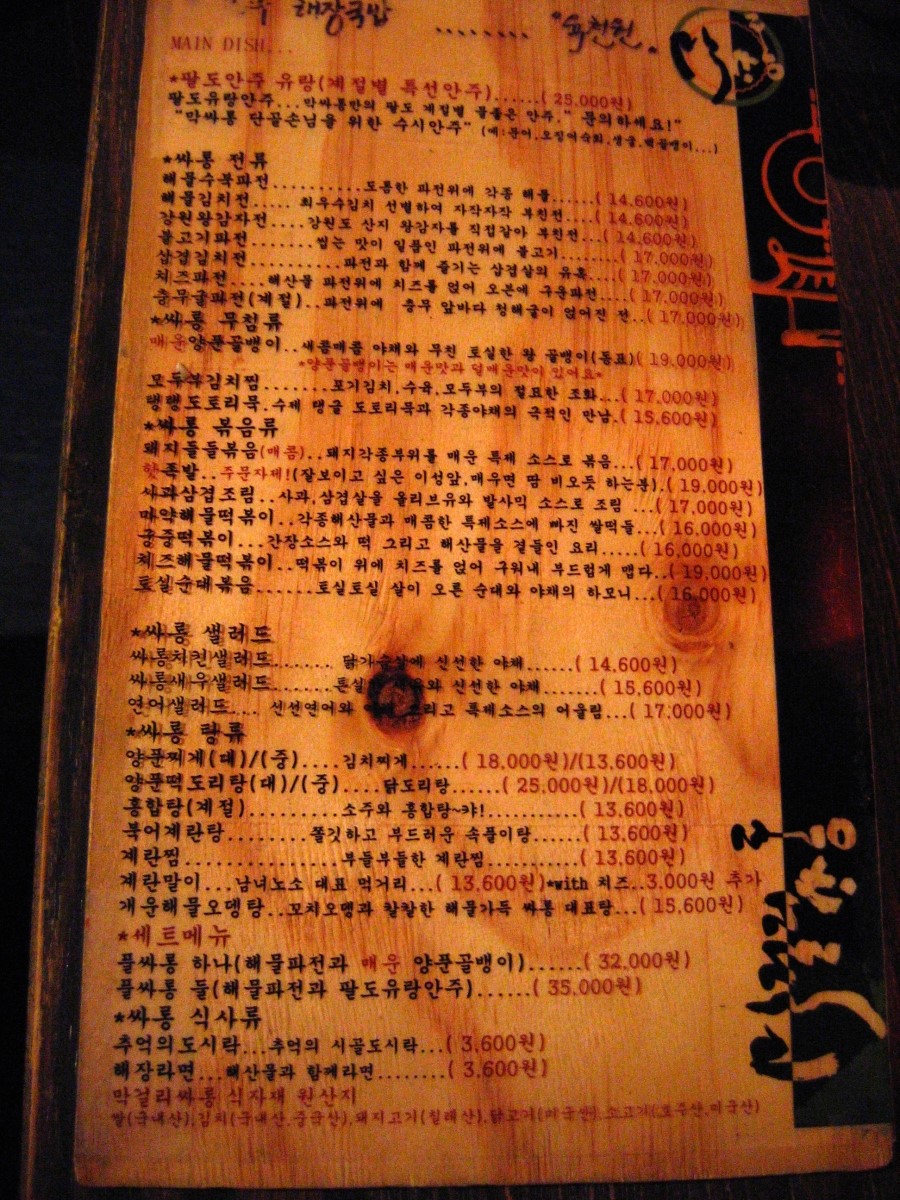 해장국밥 ........ "육천원.
MAIN DISH...
*팔도안주 유랑(계절별 특선안주)......( 25,000원)
팔도유랑안주...막싸롱만의 팔도 계절별 물좋은 안주." 문의하세요!"
"막싸롱 단골손님을 위한 수시안주" (예:문어,오징어숙회,생굴,백골뱅이...)
*싸롱 전류
해물수북파전..........도톰한 파전위에 각종 해물......( 14,600원)
해물김치전..... 최우수김치 선별하여 자작자작 부친전....( 14,600원)
강원왕감자전....강원도 산지 왕감자를 직접갈아 부친전...( 14,600원)
불고기파전.......씹는 맛이 일품인 파전위에 불고기........( 17,000원)
삼겹김치전...........파전과 함께 즐기는 삼겹살의 유혹....( 17,000원)
치즈파전....해산물 파전위에 치즈를 얹어 오븐에 구운파전....( 17,000원)
충무굴파전(계절)..파전위에 충무 앞바다 청해굴이 얹어진 전..( 17,000원)
*싸롱 무침류
매운양푼골뱅이..새콤매콤 야채와 무친 토실한 왕 골뱅이(동표)( 19,000원)
*양푼골뱅이는 매운맛과 덜매운맛이 있어요*
모두부김치찜.......포기김치,수육,모두부의 절묘한 조화....( 17,000원)
탱탱도토리묵.수제 탱글 도토리묵과 각종야채의 극적인 만남.( 15,600원)
*싸롱 볶음류
돼지들들볶음(매콤)..돼지각종부위를 매운 특제 소스로 볶음...( 17,000원)
핫족발..주문자제!(잘보이고 싶은 이성앞,매우면 땀 비오듯 하는분).( 19,000원)
사과삼겹조림..사과,삼겹살을 올리브유와 발사믹 소스로 조림 ...( 17,000원)
마약해물떡볶이..각종해산물과 매콤한 특제소스에 빠진 쌀떡들...( 16,000원)
궁중떡볶이...간장소스와 떡 그리고 해산물을 곁들인 요리.....( 16,000원)
치즈해물떡볶이..떡볶이 위에 치즈를 얹어 구워내 부드럽게 맵다..( 19,000원)
토실순대볶음.......토실토실 살이 오른 순대와 야채의 하모니...( 16,000원)
*싸롱 샐러드
싸롱치킨샐러드........ 닭가슴살에 신선한 야채......( 14,600원)
싸롱새우샐러드.......튼실 신선한 야채.......( 15,600원)
연어샐러드.... 신선연어와 그리고 특제소스의 어울림...( 17,000원)
*싸롱 탕류
양푼찌게(대)/(중)....김치찌게......( 18,000원)/(13,600원)
양푼떡도리탕(대)/(중)....닭도리탕......( 25,000원)/(18,000원)
홍합탕(계절)..........소주와 홍합탕~캬!...........( 13,600원)
북어계란탕.........쫄깃하고 부드러운 속풀이탕......( 13,600원)
계란찜................부들부들한 계란찜...........( 13,600원)
계란말이...남녀노소 대표 먹거리...( 13,600원)*with 치즈..3,000원 추가
개운해물오뎅탕..꼬치오뎅과 칼칼한 해물가득 싸롱 대표탕...( 15,600원)
*세트메뉴
플싸롱 하나(해물파전과 매운 양푼골뱅이)......( 32,000원)
플싸롱 둘(해물파전과 팔도유랑안주)......( 35,000원)
*싸롱 식사류
추억의도시락...추억의 시골도시락...( 3,600원)
해장라면...해산물과 함께라면........( 3,600원)
막걸리싸롱 식자재 원산지
쌀(국내산),김치(국내산,중국산),돼지고기(칠레산),닭고기(미국산),소고기(호주산,미국산)